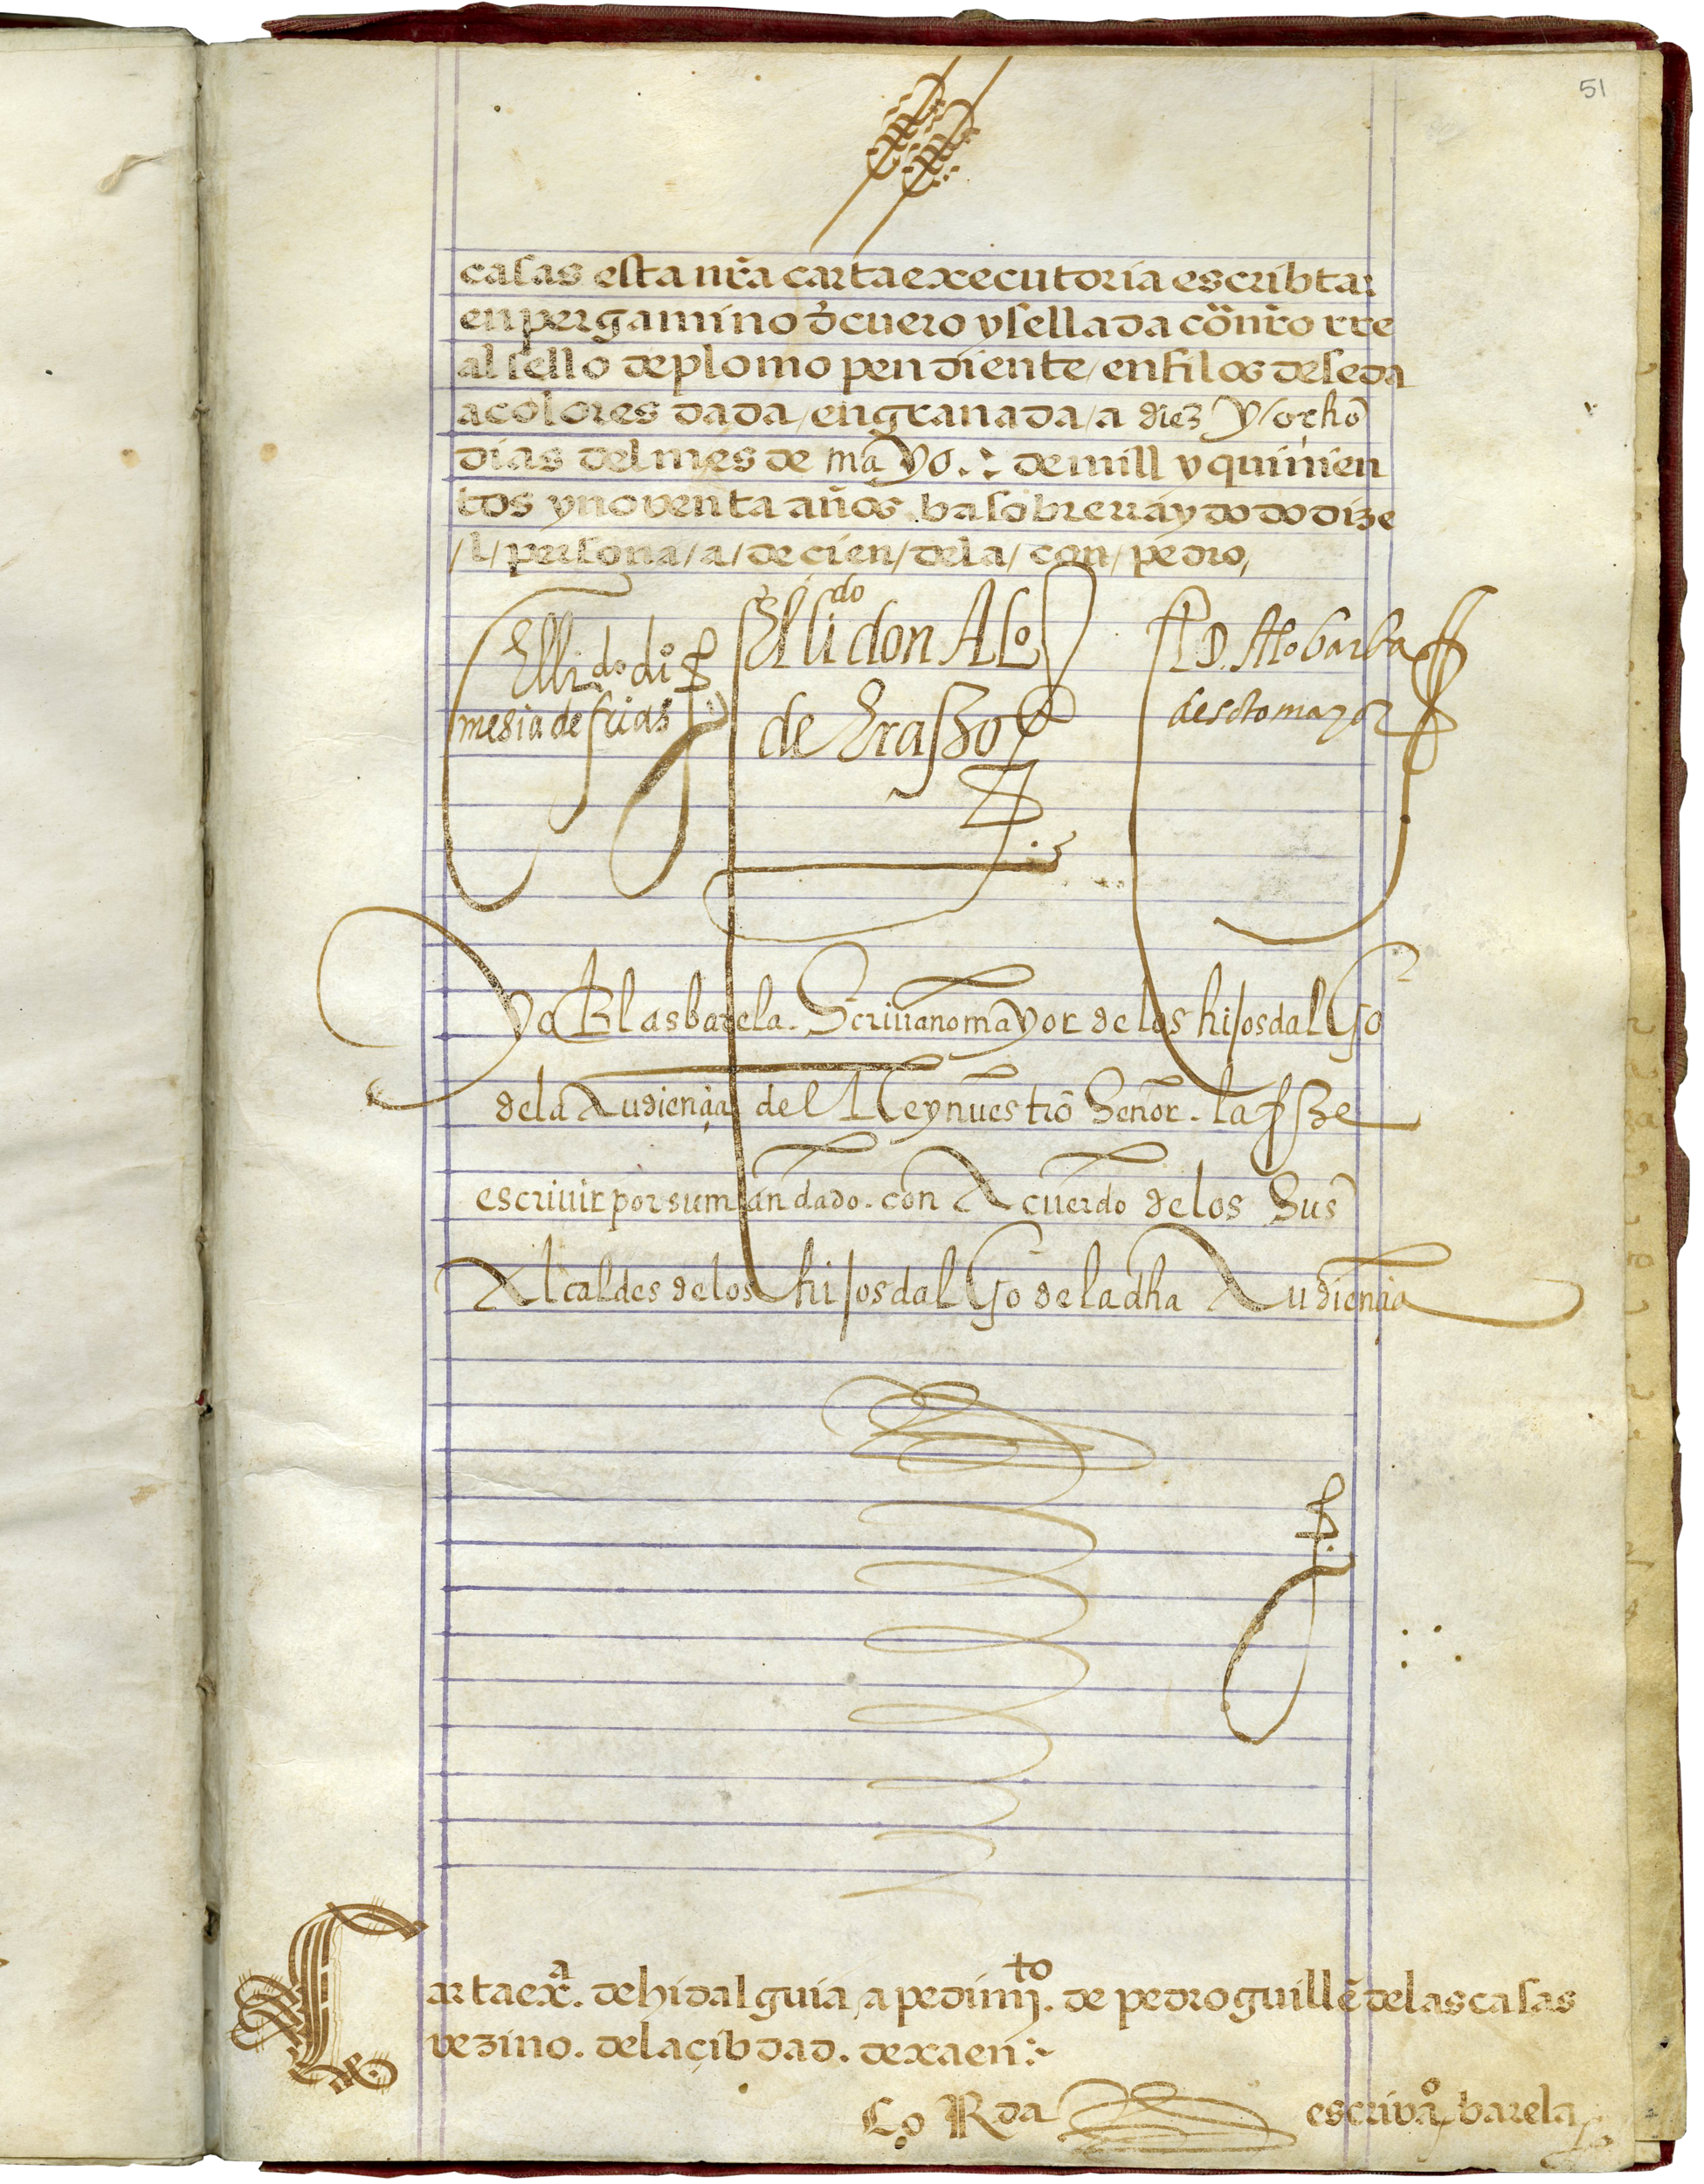 51
casas esta nr̃a carta executoria escribta
en pergamino d̃ cuero y sellada cõ nr̃o rre
al sello de plomo pendiente / en filos de seda
a colores dada / en granada / a diez y ocho
dias del mes de mayo .: de mill y quinien
tos y noventa años. ba sobre rraydo do dize
/ l / persona / a / de cien / de la / con / pedro /
El lido. don Alo. de Erasso
El lido. dio. mesia de frias
El D. Alo barba de sotomayor
yo Blas barela. Scrivano mayor de los hijosdalgo
de la Audiençia del Rey nuestro Señor. la fize
escrivir por su mandado. con Acuerdo de los Sus
Alcaldes de los hijosdalgo de la dha Audiençia
Carta exa. de hidalguia, a pedimto. de pedro guillẽ de las casas
vezino. de la çibdad. de xaen :~
Co Rda escrivao, barela